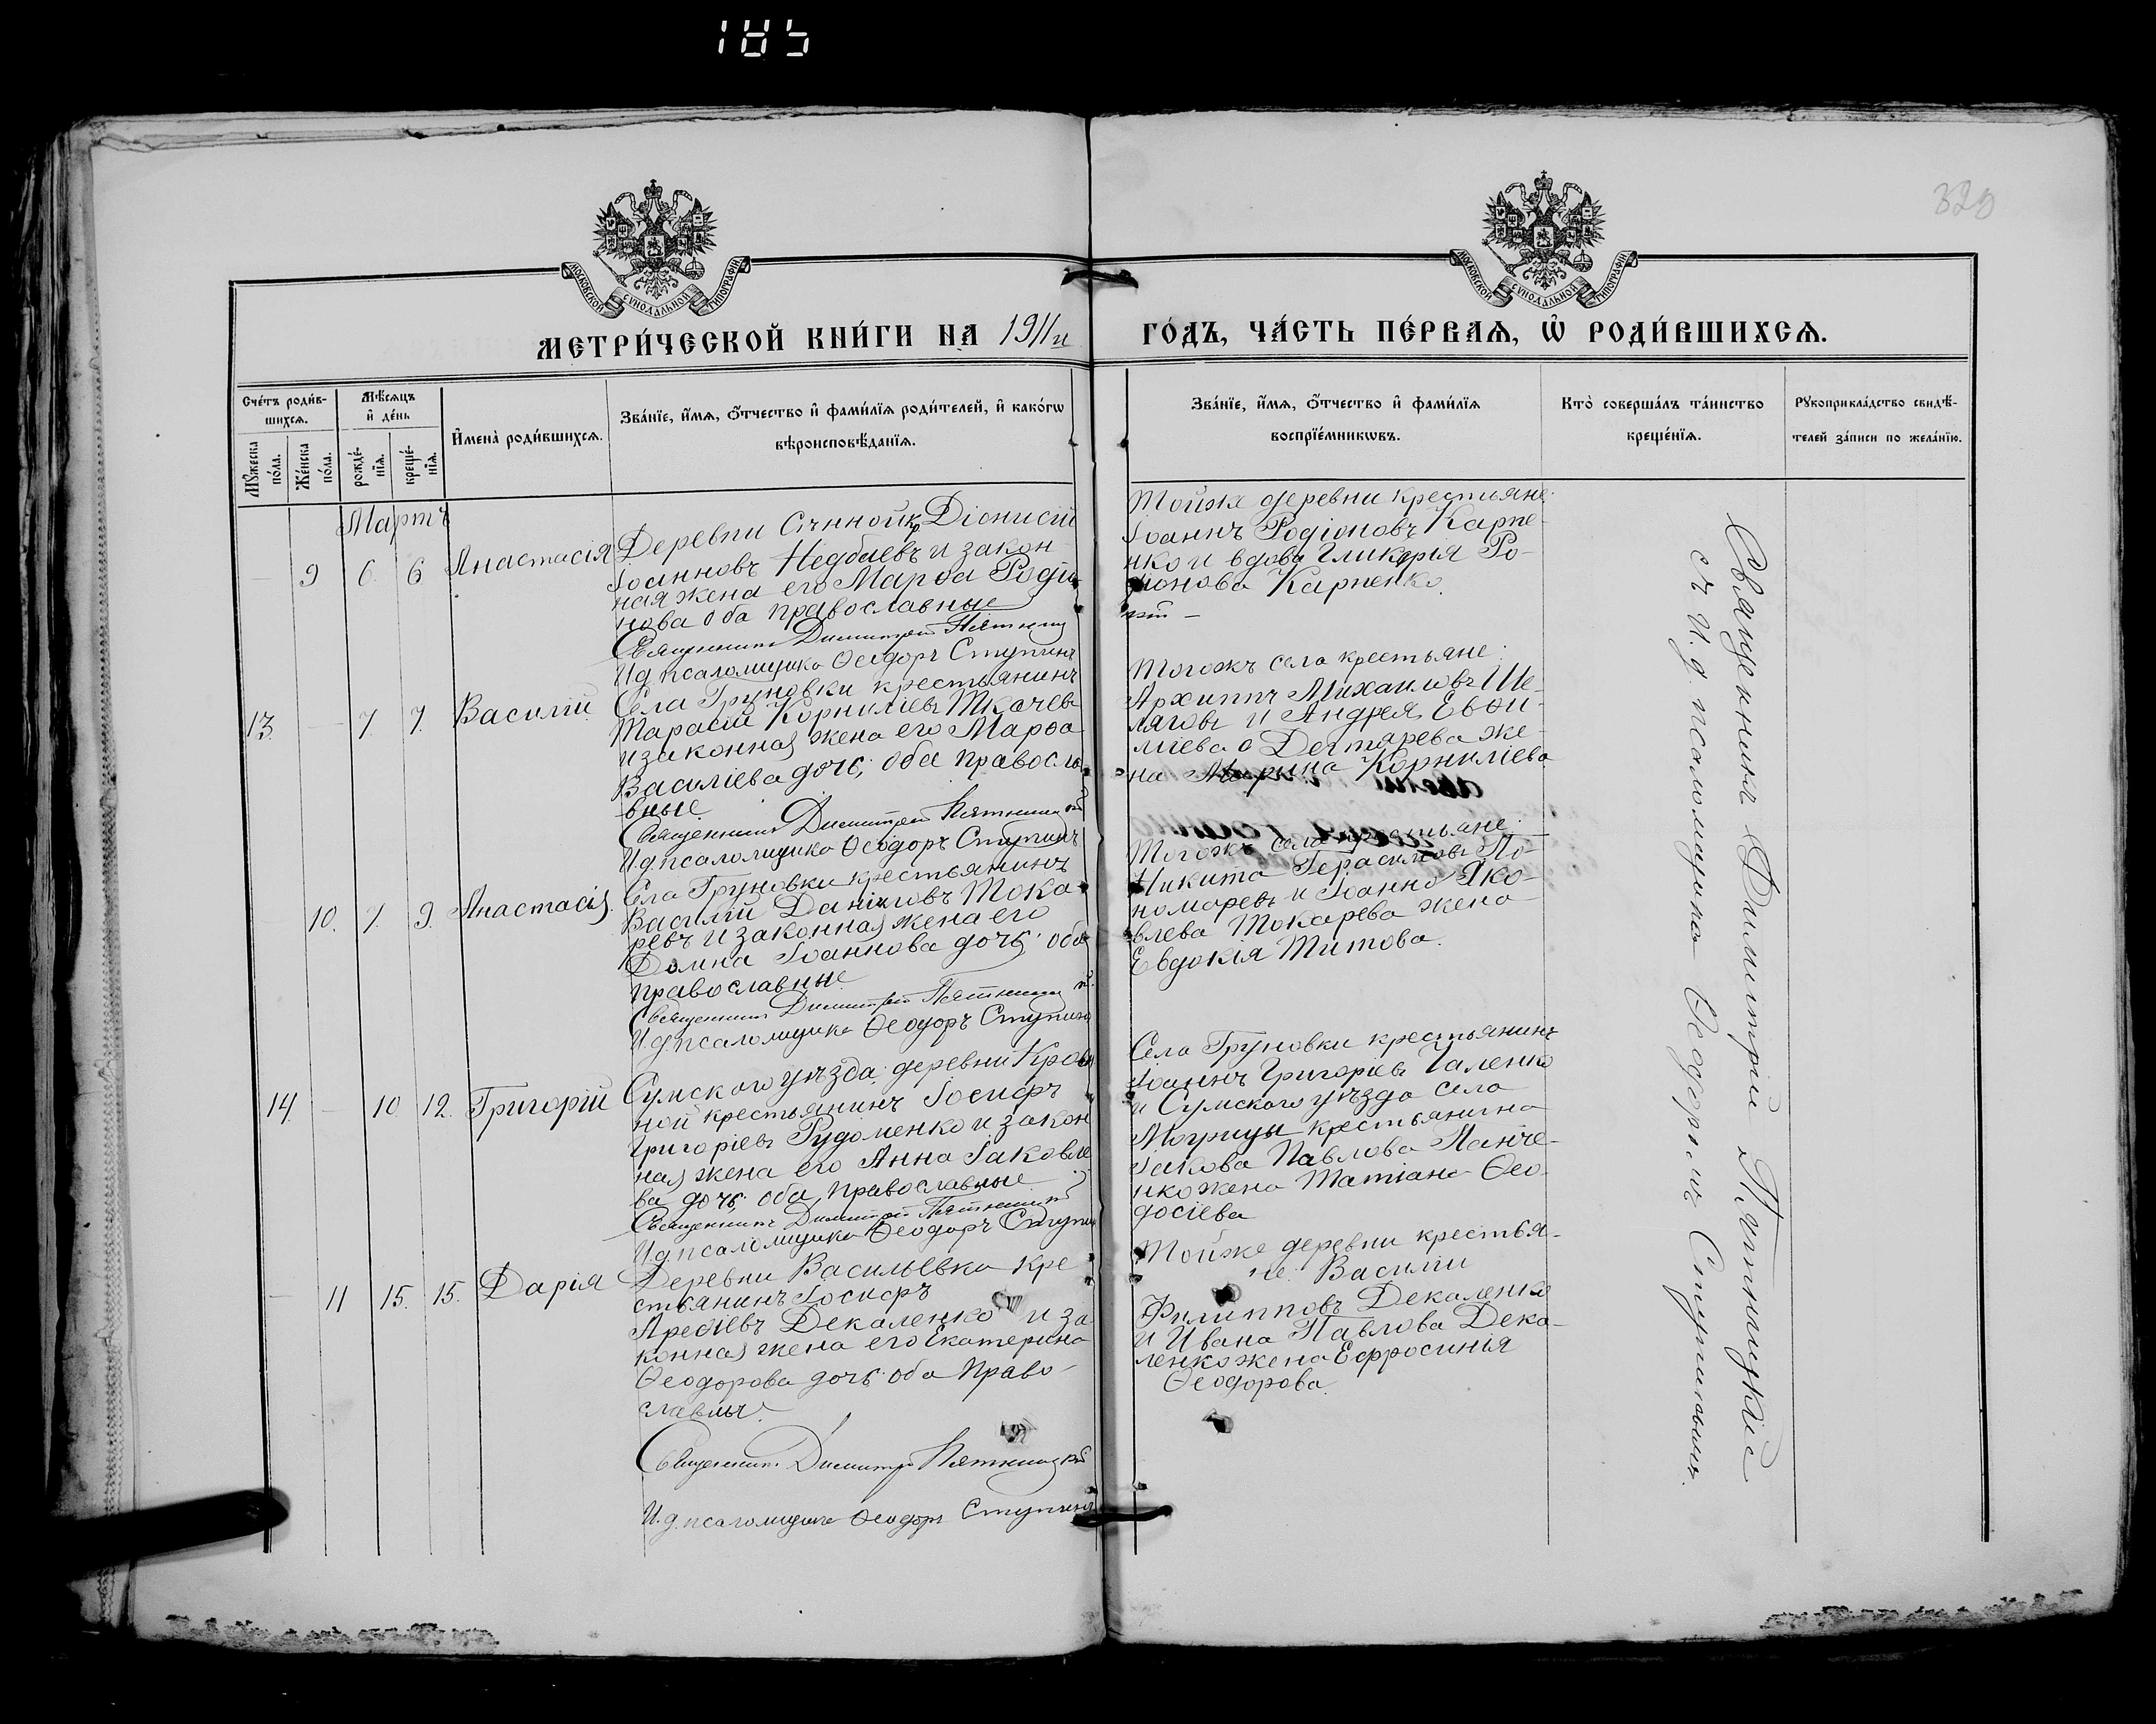 185
320
МОСКОВСКОЙ СѴНОДАЛЬНОЙ ТИПОГРАФІИ
МОСКОВСКОЙ СѴНОДАЛЬНОЙ ТИПОГРАФІИ
МЕТРИ́ЧЕСКОЙ КНИ́ГИ НА 1911й ГО́ДЪ, ЧА́СТЬ ПЕ́РВАѦ, Ѿ РОДИ́ВШИХСѦ.
Сче́тъ роди́в-
шихсѧ.
Мꙋ́жеска
по́ла.
Же́нска
по́ла.
Мѣ́сѧцъ
и҆ де́нь
рожде́-
нїѧ.
креще́-
нїѧ.
И҆мена̀ роди́вшихсѧ.
Зва́нїе, и҆́мѧ, ѻ҆́тчество и҆ фами́лїѧ роди́телей, и҆ како́гѡ
вѣроисповѣ́данїѧ.
Зва́нїе, и҆́мѧ, ѻ҆́тчество и҆ фами́лїѧ
воспрїе́мникѡвъ.
Кто̀ соверша́лъ та́инство
креще́нїѧ.
Рꙋкоприкла́дство свидѣ́-
телей за́писи по жела́нїю.
Мартъ
— 9 6 6 Анастасія
Деревни Діонисій
Іоанновъ Недбаевъ и закон
ная жена его Марѳа Родіо
нова оба православные
Священникъ Димитрій Пятницкій
И.д. псаломщика Ѳеодоръ Ступинъ
Тойже деревни крестьяне:
Іоаннъ Родіоновъ Карпе-
нко и вдова Гликерія Ро-
діонова Карпенко.
13. — 7. 7. Василій
Села Груновки крестьянинъ
Тарасій Корниліевъ Ткачевъ
и законная жена его Марѳа
Василіева дочь; оба правосла
вные
Священникъ Димитрій Пятницкій
И.д. псаломщика Ѳеодоръ Ступинъ
Тогожъ села крестьяне:
Архиппъ Михаиловъ Ше-
ляговъ и Андрея Евѳи-
міева Дегтярева же-
на Марина Корниліева
10. 7. 9. Анастасія
Села Груновки крестьянинъ
Василій Даніиловъ Тока
ревъ и законная жена его
Домна Іоаннова дочь; оба
православные
Священникъ Димитрій Пятницкій
И.д. псаломщика Ѳеодоръ Ступинъ
Тогожъ села крестьяне:
Никита Герасимовъ По-
номаревъ и Іоанна Яко-
влева Токарева жена
Евдокія Титова.
14. — 10 12. Григорій
Сумского уѣзда; деревни
ной крестьянинъ Іосифъ
Григоріевъ Рудоменко и закон
ная жена его Анна Іаковле
ва дочь; оба православные
Священникъ Димитрій Пятницкій
И.д. псаломщика Ѳеодоръ Ступинъ
Села Груновки крестьянинъ
Іоаннъ Григоріевъ Галенко
и Сумского уѣзда села
Могрицы крестьянина
Іакова Павлова Панче-
нко жена Татіана Ѳео-
досіева
— 11 15. 15. Дарія
Деревни Васильевки кре
стьянинъ Іосифъ
Арефіевъ Декаленко и за
конная жена его Екатерина
Ѳеодорова дочь; оба право-
славные.
Священникъ Димитрій Пятницкій
И.д. псаломщика Ѳеодоръ Ступинъ
Тойже деревни крестья-
не: Василій
Филипповъ Декаленко
и Ивана Павлова Дека-
ленко жена Ефросинія
Ѳеодорова.
Священникъ Димитрій Пятницкій
съ И.д. псаломщика Ѳеодоромъ Ступинымъ.